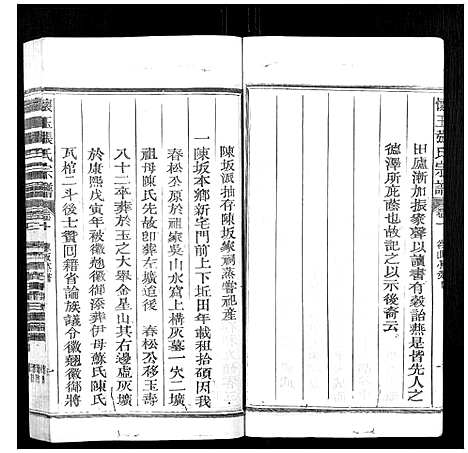 懷玉張氏宗譜
卷一
田廬漸加振家聲以讀書有穀詒燕是皆先人之
德澤所庇蔭也故記之以示後裔云
陳坂派抽存陳坂家祠蒸嘗祀產
一陳坂本鄉新宅門前上下坵田年載租拾碩因我
春松公原於祖家吳山水窠上橫灰墓一穴二壙
祖母陳氏先故卽葬左壙追後 春松公移玉壽
八十二卒葬於玉之大舉金星山其右邊虛灰壙
於康熙戊寅年被徽翹徽御添葬伊母蘇氏陳氏
瓦棺二斗後士贊回籍省論族議令徽翹徽御將
懷玉張氏宗譜